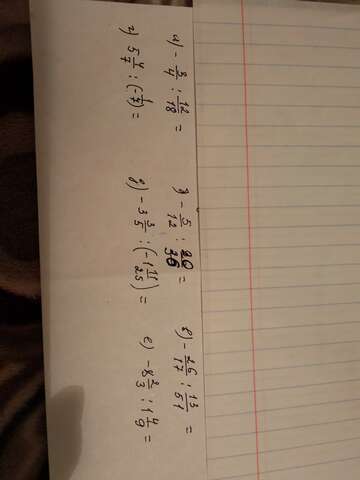 а) - 3/4 : 12/18 = б) - 5/12 : 20/36 = в) - 26/17 : 13/51 =
г) 5 4/7 : (-1/7) = д) -3 3/5 : (-1 11/25) = е) -8 2/3 : 1 4/9 =